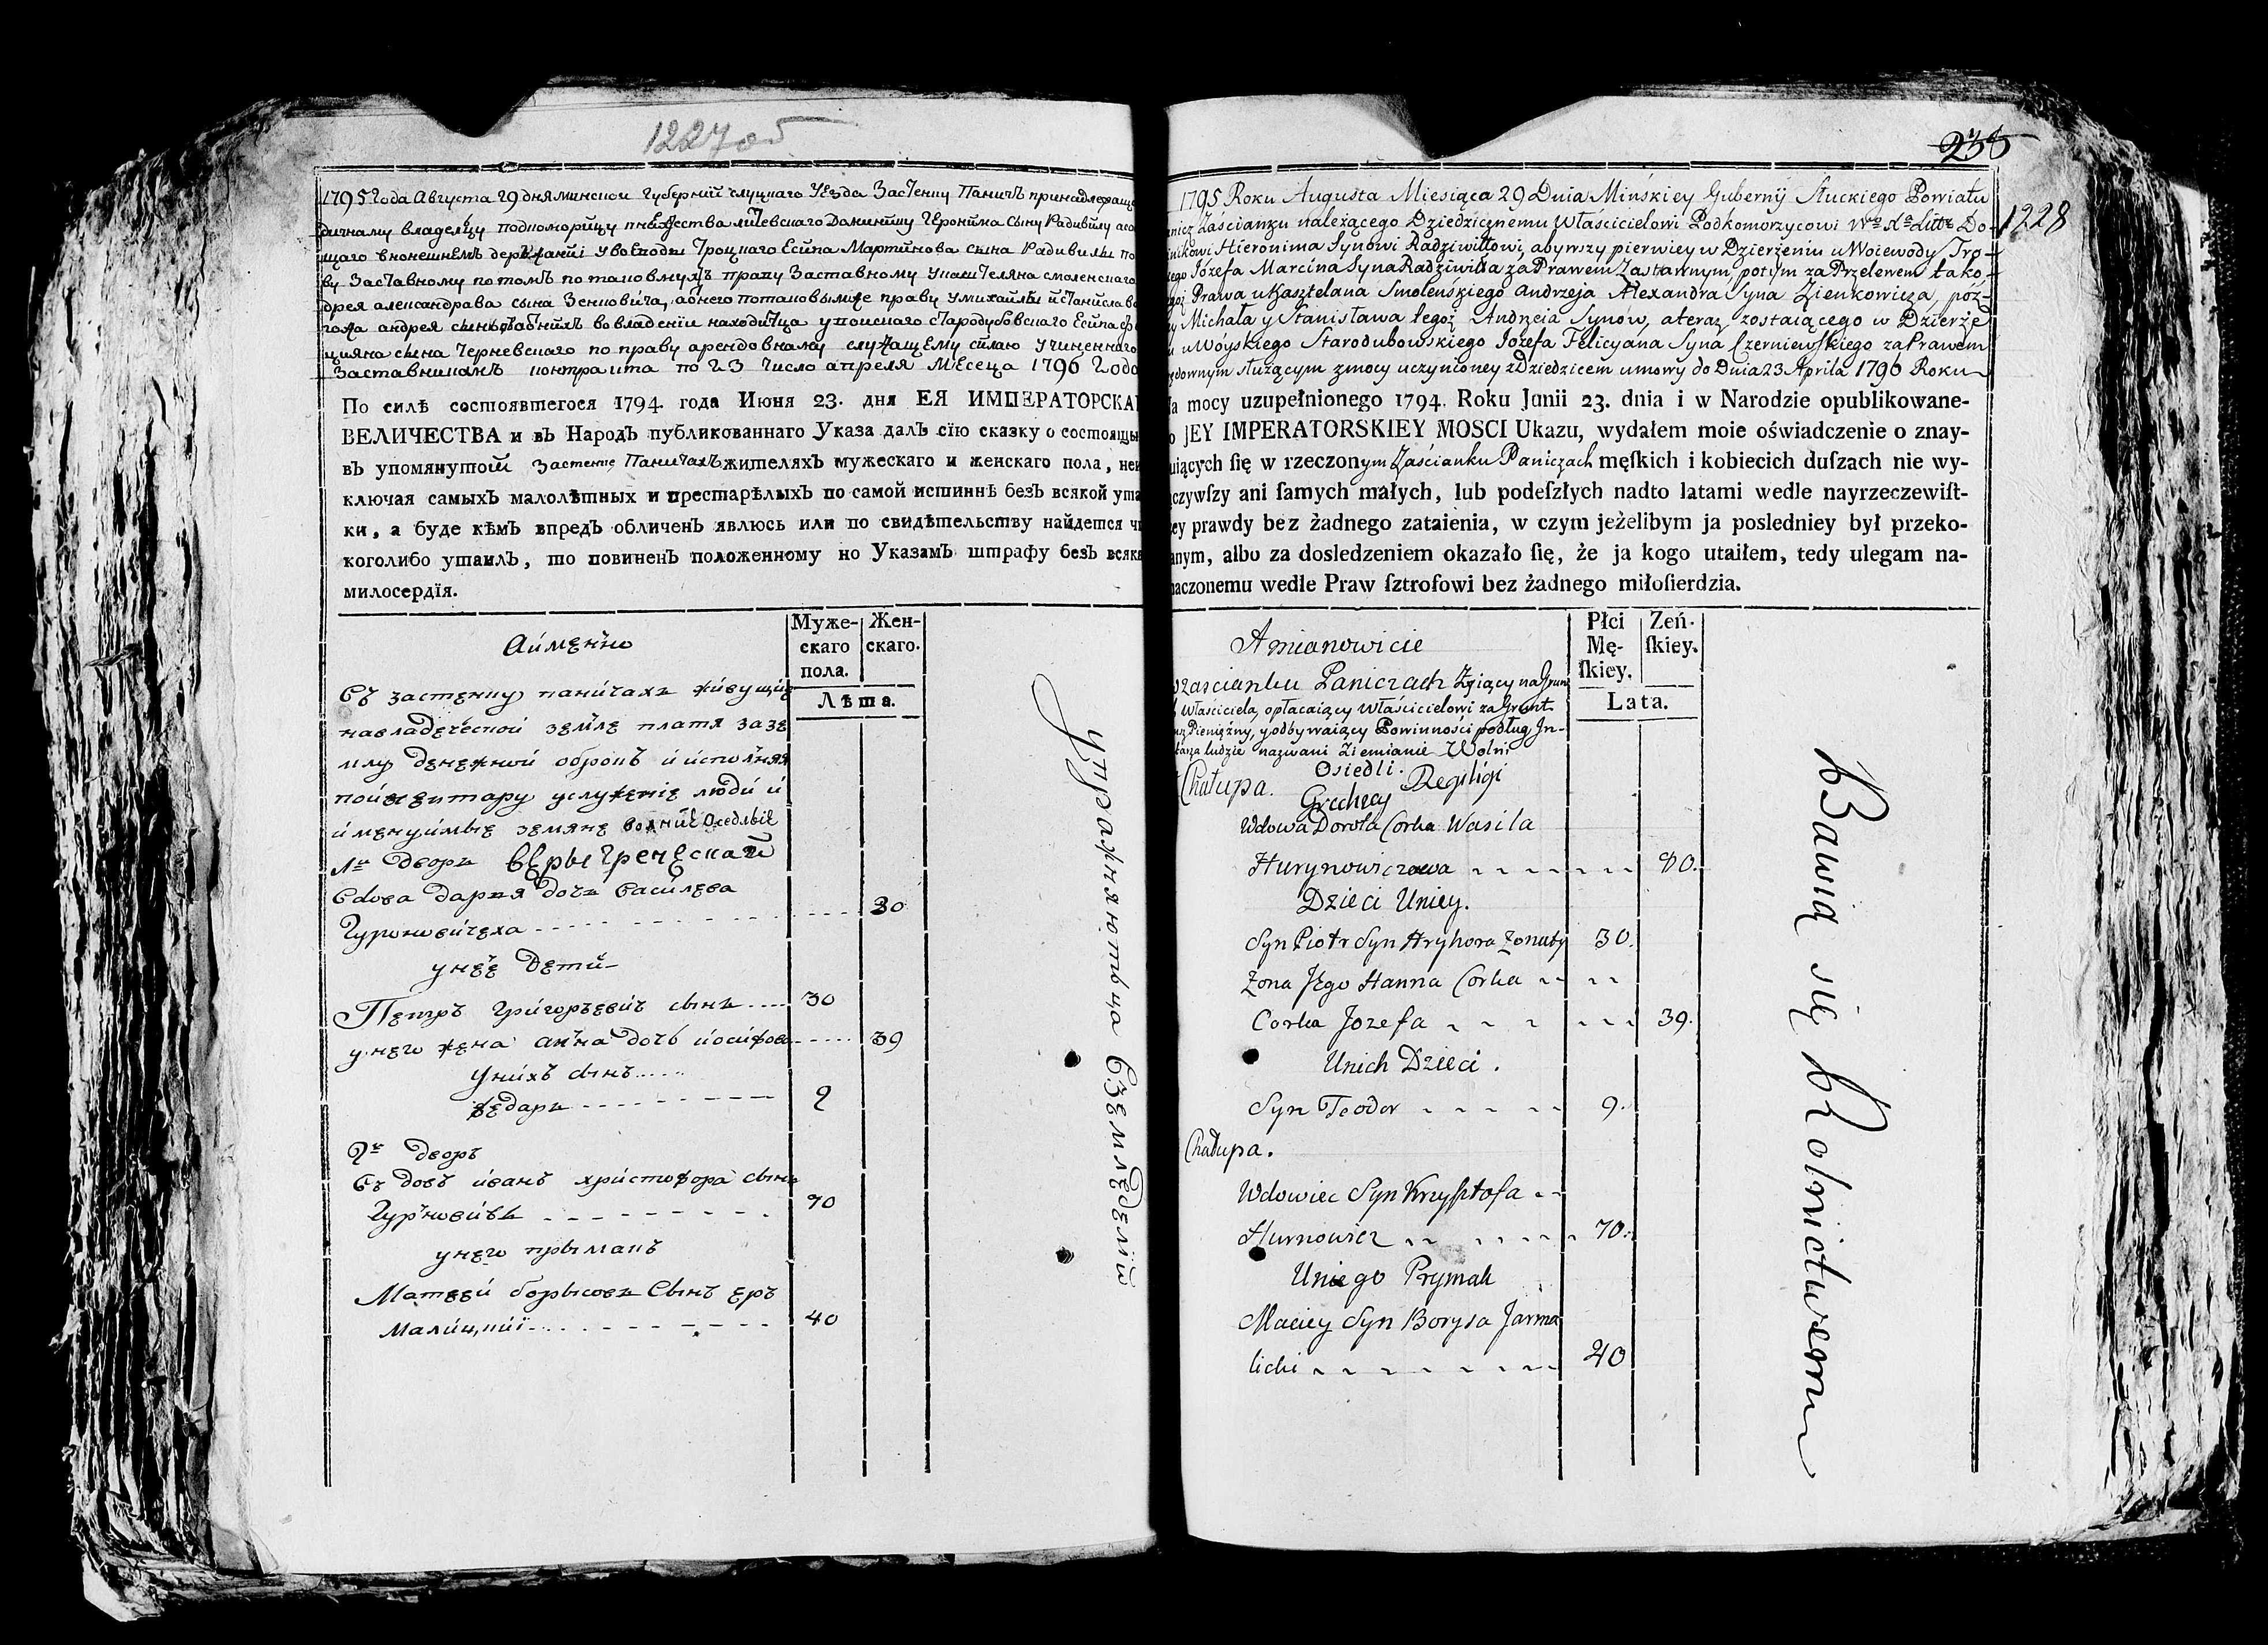 1227 об
1795 Года Августа 29 дня минской Губернии слуцкаго уезда Застенку Паничъ принадлежаща
дичнаму владелцу подкоморицу княжества литевскаго Даминику Геронима Сыну Радивилу
щаго внонешнемъ держаниі Увоеводы Троцкаго Есипа Мартинова сына Радивилы по
ву Заставному потомъ потаковмужъ праву Заставному Укаштеляна смоленскаго
дрея александрава сына Зенковича, потаковымъже праву Умихайлы истанислава
андрея вовладении находитца стародубовскаго Есипа
цияна сына Черневскаго по праву арендовнаму служащему силаю Учиненнаго
Заставникамъ контракта по 23 Число апреля Месеца 1796 Года
По силѣ состоявшегося 1794. года Июня 23. дня ЕЯ ИМПЕРАТОРСКА
ВЕЛИЧЕСТВА и въ Народъ публикованнаго Указа далъ сїю сказку о состоящи
въ упомянутой Застенке Паничахъ жителяхъ мужескаго и женскаго пола, неи
ключая самыхъ малолѣтныхъ и престарѣлыхъ по самой истиннѣ безъ всякой ута
ки, а буде кѣмъ впредъ обличенъ явлюсь или по свидѣтельству найдется ч
коголибо утаилъ, то повиненъ положенному по Указамъ штрафу безъ всяка
милосердїя.
Аймѣнно
Муже-
скаго
пола.
Жен-
скаго.
Лѣта.
Въ застенку паничахъ живущие
навладеческой земле платя зазе
млу денежной оброкъ и исполняя
поинвентару услужение люди и
именуимые земяне волние оседлые
1й дворъ веры греческай
Вдова дария дочъ василева
Гуриновичеха - - - 30
унеѣ Дети
Петръ Григоръевич сынъ - - - 30
унего жена анна дочь иосифова - - - 39
Унихъ сынъ - - -
федаръ - - - 9
2й дворъ
Вдовъ иванъ христофора сынъ
Гурновичъ - - - 70
унего прымакъ
Матвей борысовъ Сынъ ер
малицкиї - - - 40
упражняютьца вземледелій
235
1228
1795 Roku Augusta Miesiąca 29 Dnia Mińskiey Gubernij Słuckiego Powiatu
nicz Zaścianku należącego Dziedzicznemu Właścicielowi Podkomorzycowi Wgo Xa Litte Do-
inikowi Hieronima Synowi Radziwiłłowi, abywszy pierwiey w Dzierżeniu u Woiewody Tro-
kiego Józefa Marcina Syna Radziwiłła za Prawem Zastawnym, potym za Przelewem tako-
goż Prawa u Kasztelana Smoleńskiego Andrzeja Alexandra Syna Zienkowicza, póź-
y Michała y Stanisława tegoż Andrzeia Synów, ateraz zostaiącego w Dzierże
u Woyskiego Starodubowskiego Józefa Felicyana Syna Czerniewskiego za Prawem
ędownym służącym zmocy uczynioney z Dziedzicem umowy do Dnia 23 Aprila 1796 Roku
Na mocy uzupełnionego 1794. Roku Junii 23. dnia i w Narodzie opublikowane-
o JEY IMPERATORSKIEY MOSCI Ukazu, wydałem moie oświadczenie o znay-
uiących ſię w rzeczonym Zascianku Paniczach męſkich i kobiecich duſzach nie wy-
ączywſzy ani ſamych małych, lub podeſzłych nadto latami wedle nayrzeczewiſt-
zey prawdy bez żadnego zataienia, w czym jeżelibym ja posledniey był przeko-
anym, albo za dosledzeniem okazało ſię, że ja kogo utaiłem, tedy ulegam na-
naczonemu wedle Praw ſztrofowi bez żadnego miłoſierdzia.
Amianowicie
Płci
Mę-
ſkiey.
Zeń-
ſkiey.
Lata.
w zascianku Paniczach Zyiący na Grun
Właściciela, opłacaiący Właścicielowi za Grunt
nsz Pieniężny, y odbywaiący Powinności podług In-
tarza ludzie nazwani Ziemianie Wolni
Osiedli.
Chałupa. Grechecy Regiligi
Wdowa Dorota Corka Wasila
Hurynowiczowa - - - 80.
Dzieci Uniey.
Syn Piotr Syn Hryhora Zonaty 30.
Zona Jego Hanna Corka - - -
Corka Jozefa - - - 39.
Unich Dzieci.
Syn Teodor - - - 9.
Chałupa.
Wdowiec Syn Krzysztofa - -
Hurnowicz - - - 70.
Uniego Prymak
Maciey Syn Borysa Jarma
licki - - - 40
Bawią się Rolnictwem